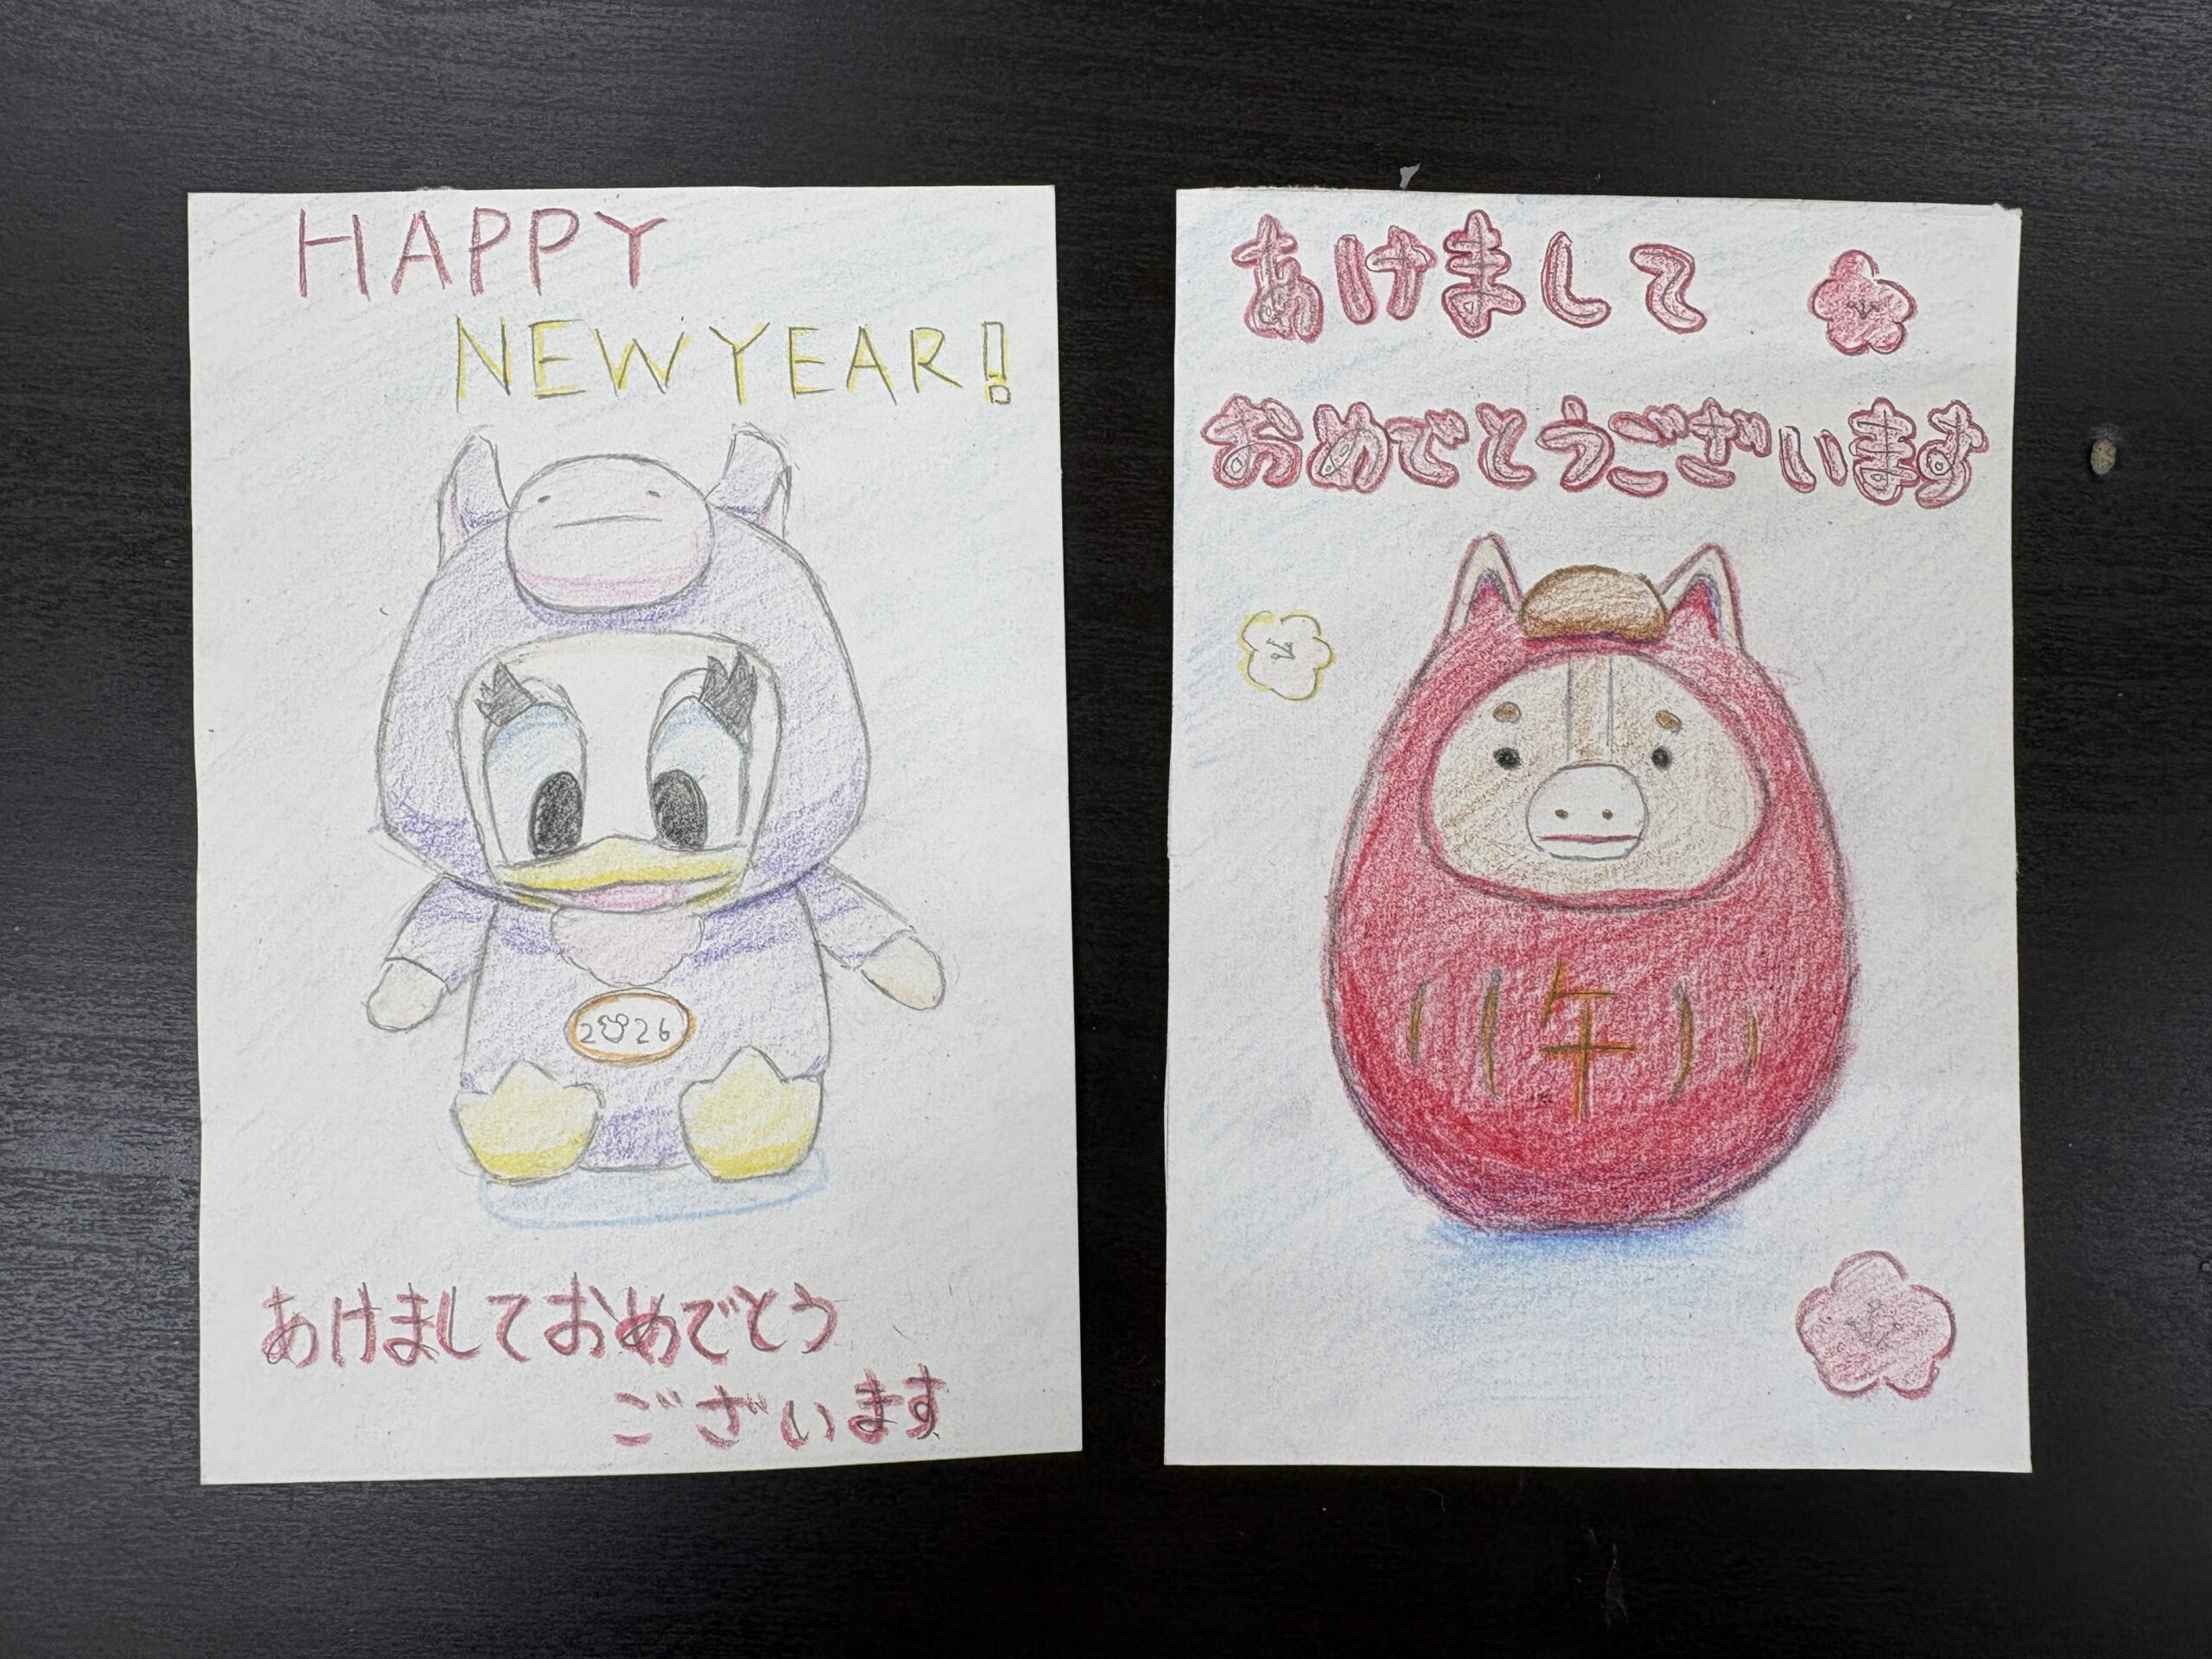 HAPPY
NEW YEAR!
2026
あけましておめでとう
ございます
あけまして
おめでとうございます
午